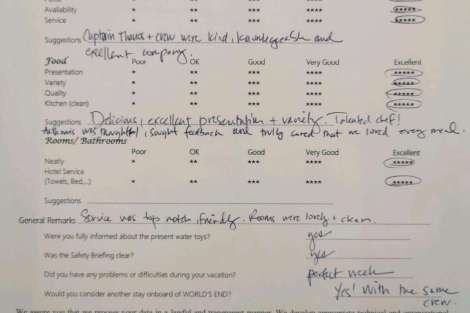 Availability * ** *** **** *****
Service * ** *** **** *****
Suggestions Captain Thanos + crew were kind, knowledgeable and
excellent company.
Food Poor OK Good Very Good Excellent
Presentation * ** *** **** *****
Variety * ** *** **** *****
Quality * ** *** **** *****
Kitchen (clean) * ** *** **** *****
Suggestions Delicious, excellent presentation + variety. Talented chef!
was thoughtful, sought feedback and truly cared that we loved every meal.
Rooms/ Bathrooms
Poor OK Good Very Good Excellent
Neatly * ** *** **** *****
Hotel Service
(Towels, Bed,..) * ** *** **** *****
Suggestions
General Remarks Service was top notch, friendly. Rooms were lovely + clean.
Were you fully informed about the present water toys? yes
Was the Safety Briefing clear? yes
Did you have any problems or difficulties during your vacation? perfect week
Would you consider another stay onboard of WORLD'S END? Yes! With the same
crew.